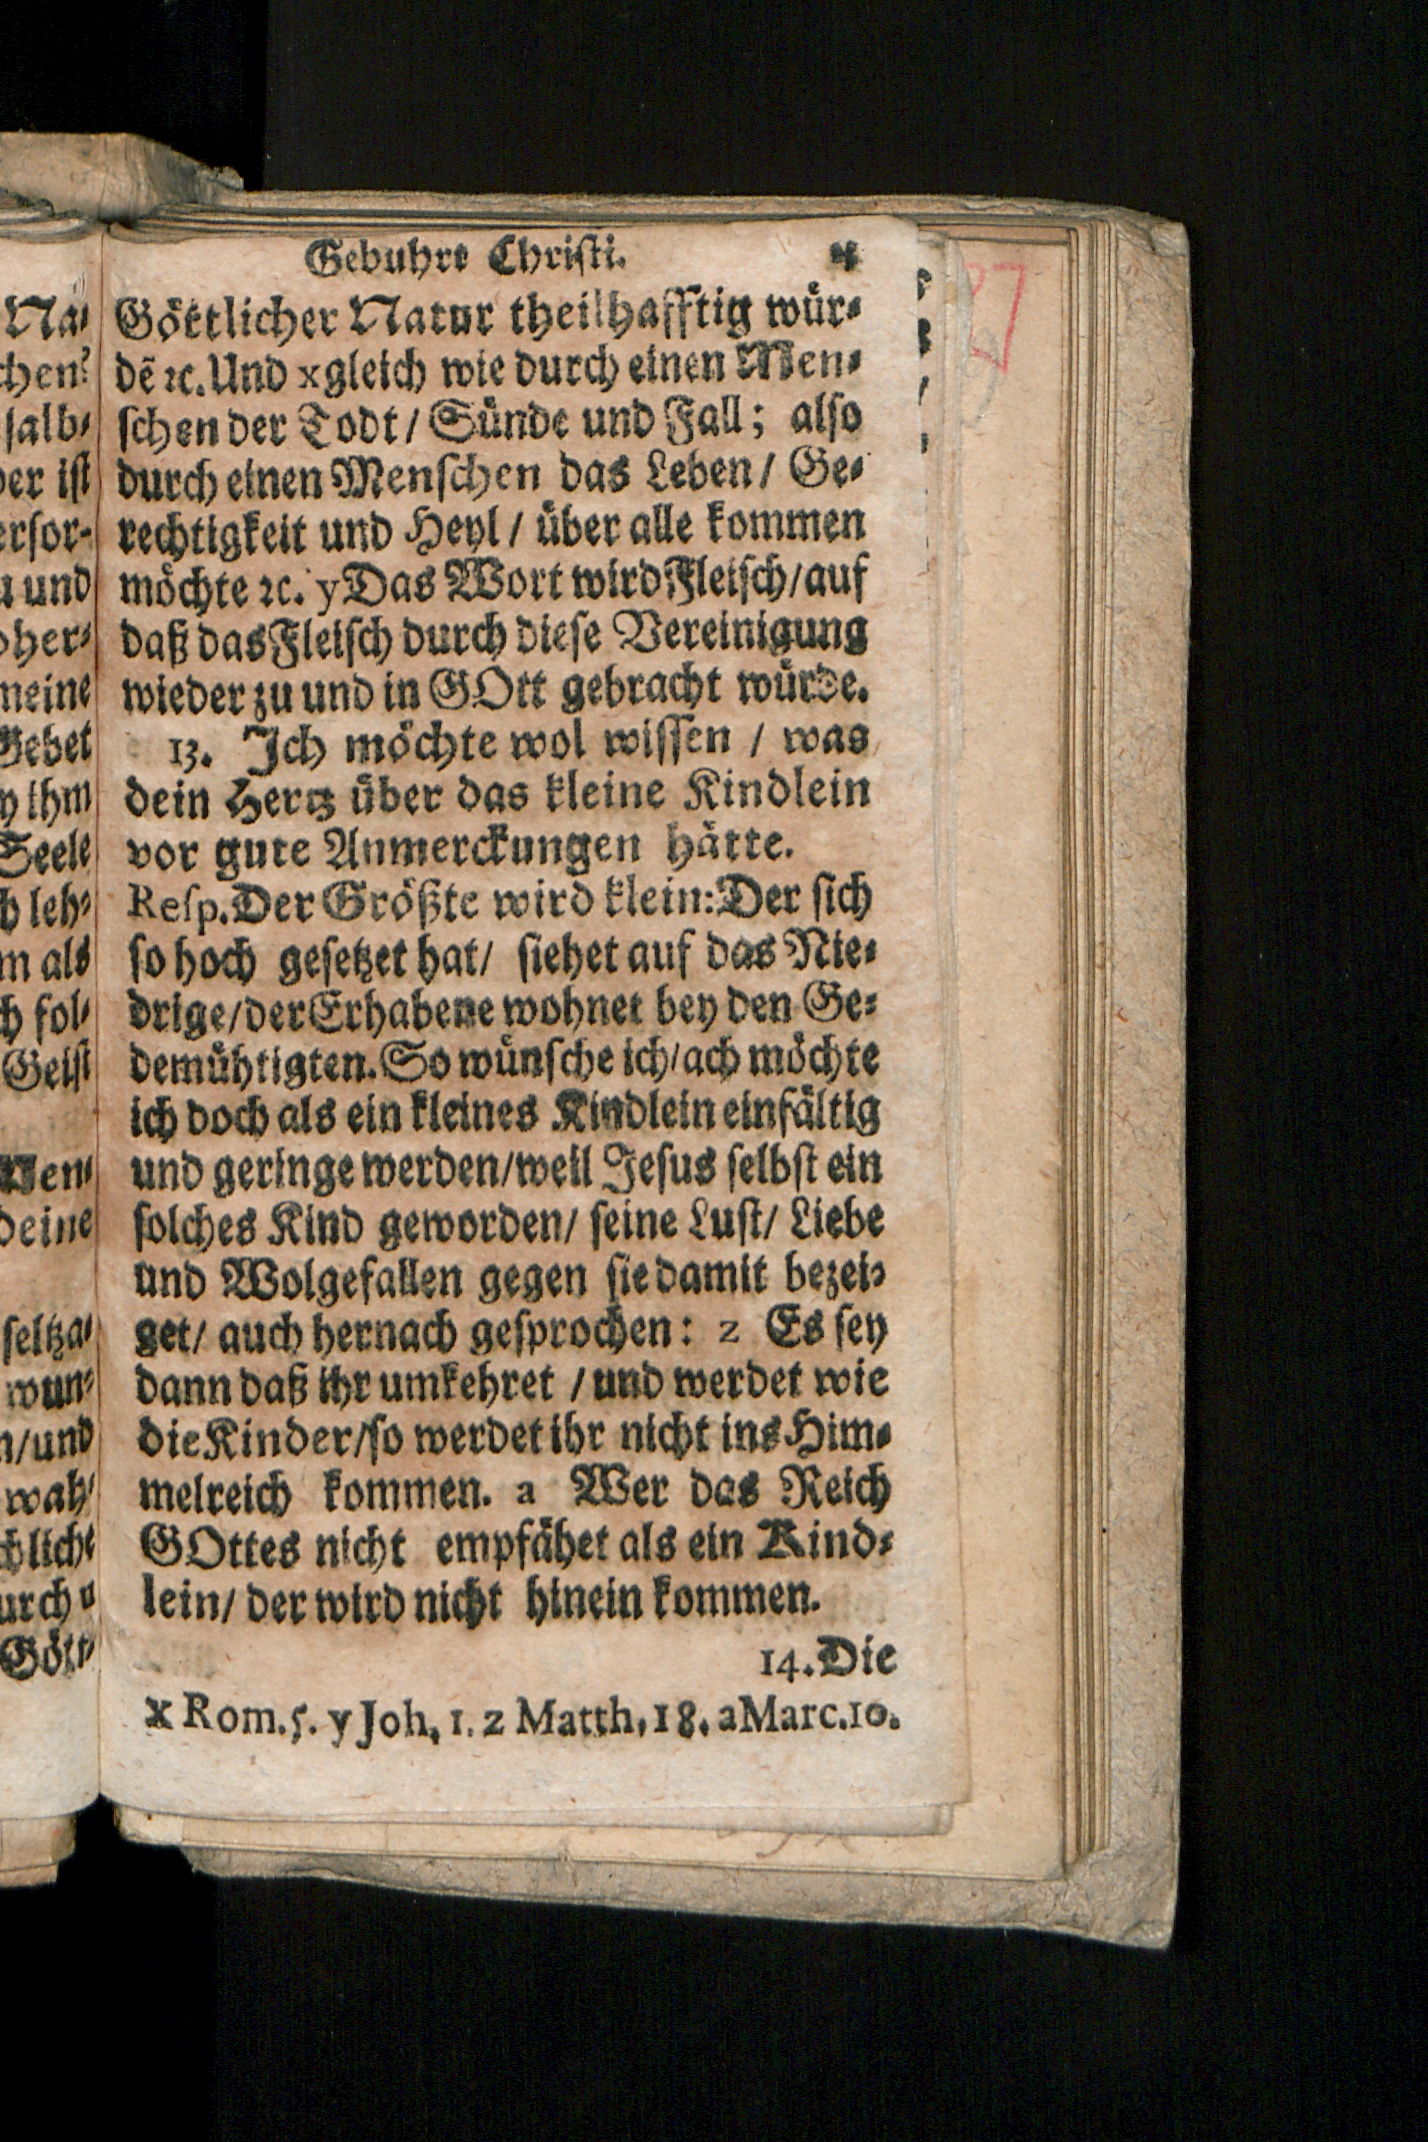 Gebuhrt Christi.
Göttlicher Natur theilhafftig wür-
dē ꝛc. Und x gleich wie durch einen Men-
schen der Todt / Sünde und Fall; also
durch einen Menschen das Leben / Ge-
rechtigkeit und Heyl / über alle kommen
möchte ꝛc. y Das Wort wird Fleisch / auf
daß das Fleisch durch diese Vereinigung
wieder zu und in GOtt gebracht würde.
13. Ich möchte wol wissen / was
dein Hertz über das kleine Kindlein
vor gute Anmerckungen hätte.
Resp. Der Größte wird klein: Der sich
so hoch gesetzet hat / siehet auf das Nie-
drige / der Erhabene wohnet bey den Ge-
demühtigten. So wünsche ich / ach möchte
ich doch als ein kleines Kindlein einfältig
und geringe werden / weil Jesus selbst ein
solches Kind geworden / seine Lust / Liebe
und Wolgefallen gegen sie damit bezei-
get / auch hernach gesprochen: z Es sey
dann daß ihr umkehret / und werdet wie
die Kinder / so werdet ihr nicht ins Him-
melreich kommen. a Wer das Reich
GOttes nicht empfähet als ein Kind-
lein / der wird nicht hinein kommen.
14. Die
x Rom. 5. y Joh. 1. z Matth. 18. a Marc. 10.